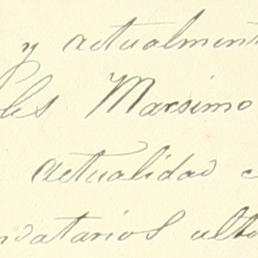 y actualment
les Marsimo
actualidad c
ndatarios ulto